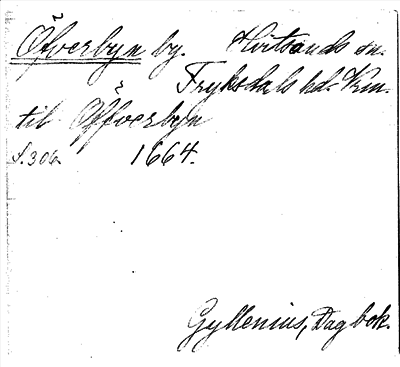 Öfverbyn by. Hvitsands sn.
Fryksdals hd. Km.
til Öffverbyn
S. 306. 1664.
Gyllenius, Dagbok.